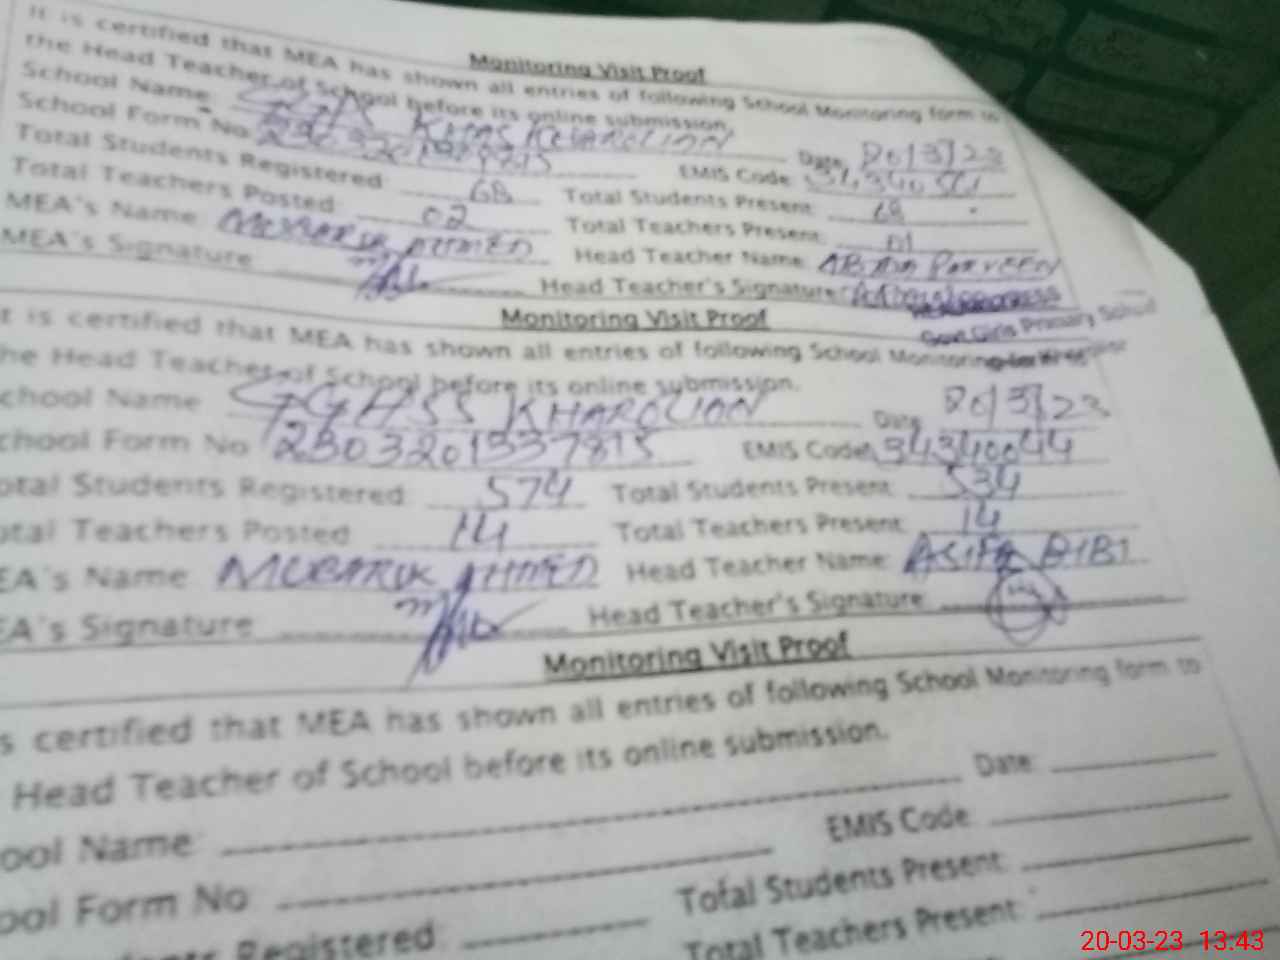 Monitoring Visit Proof
It is certified that MEA has shown all entries of following School Monitoring form to
the Head Teacher of School before its online submission.
School Name: KHAS KHAROLIAN Date: 20/3/23
School Form No: EMIS Code:
Total Students Registered: 68 Total Students Present: 68
Total Teachers Posted: 02 Total Teachers Present: 01
MEA's Name: MUBARIK AHMED Head Teacher Name: ABIDA PARVEEN
MEA's Signature Head Teacher's Signature:
HEADMISTRESS
Govt. Girls Primary School
Monitoring Visit Proof
t is certified that MEA has shown all entries of following School Monitoring
he Head Teacher of School before its online submission.
chool Name GGHSS KHAROLIAN Date 20/3/23
chool Form No 2303201337815 EMIS Code: 34340044
otal Students Registered: 574 Total Students Present: 534
otal Teachers Posted 14 Total Teachers Present: 14
EA's Name MUBARIK AHMED Head Teacher Name: ASIFA BIBI
EA's Signature Head Teacher's Signature:
Monitoring Visit Proof
s certified that MEA has shown all entries of following School Monitoring form to
Head Teacher of School before its online submission.
ool Name: Date:
ool Form No EMIS Code
dents Registered: Total Students Present:
Total Teachers Present:
20-03-23 13:43